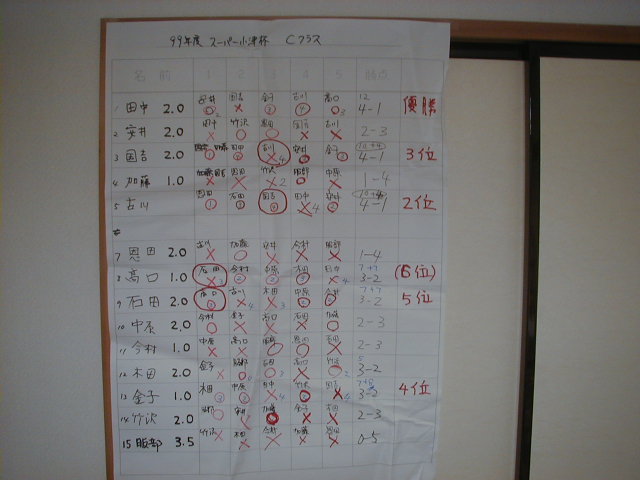 99年度 スーパー小津杯 Cクラス
名前 1 2 3 4 5 勝点
1 田中 2.0 安井 国吉 金子 古川 高口 12 4-1 優勝
2 安井 2.0 田中 竹沢 恩田 古川 2-3
3 国吉 2.0 田中 古川 安井 金子 4-1 3位
4 加藤 1.0 恩田 竹沢 服部 中原 1-4
5 古川 恩田 石田 国吉 田中 4-1 2位
7 恩田 2.0 古川 加藤 安井 今村 服部 1-4
8 高口 1.0 石田 今村 中原 木田 田中 7+7 3-2 (6位)
9 石田 2.0 高口 古川 木田 中原 今村 7+7 3-2 5位
10 中原 2.0 今村 金子 高口 石田 加藤 2-3
11 今村 1.0 中原 高口 服部 恩田 石田 2-3
12 木田 2.0 金子 服部 石田 高口 竹沢 5 3-2
13 金子 1.0 木田 中原 田中 竹沢 国吉 3-2 4位
14 竹沢 2.0 服部 安井 加藤 金子 木田 2-3
15 服部 3.5 竹沢 木田 今村 加藤 恩田 0-5